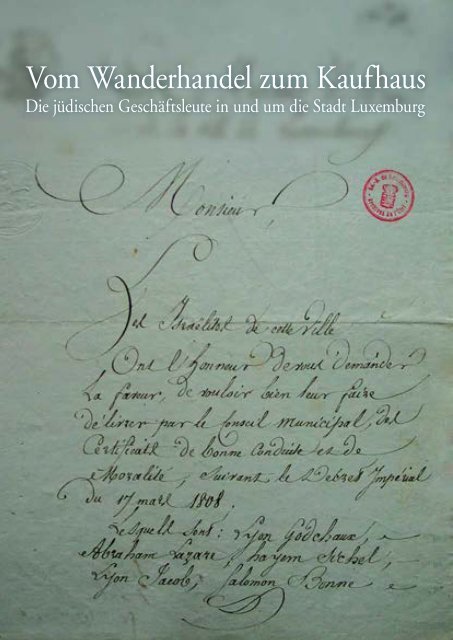 Vom Wanderhandel zum Kaufhaus
Die jüdischen Geschäftsleute in und um die Stadt Luxemburg
Monsieur,
Les Israëlites de cette Ville
Ont l'honneur de vous demander
La faveur, de vouloir bien leur faire
délivrer par le Conseil Municipal, des
Certificats de bonne Conduite et de
Moralité, suivant le Décret Impérial
du 17 mars 1808.
Lesquels sont: Lyon Godchaux,
Abraham Lazare, hayem Sichel,
Lyon Jacob, Salomon Bonne